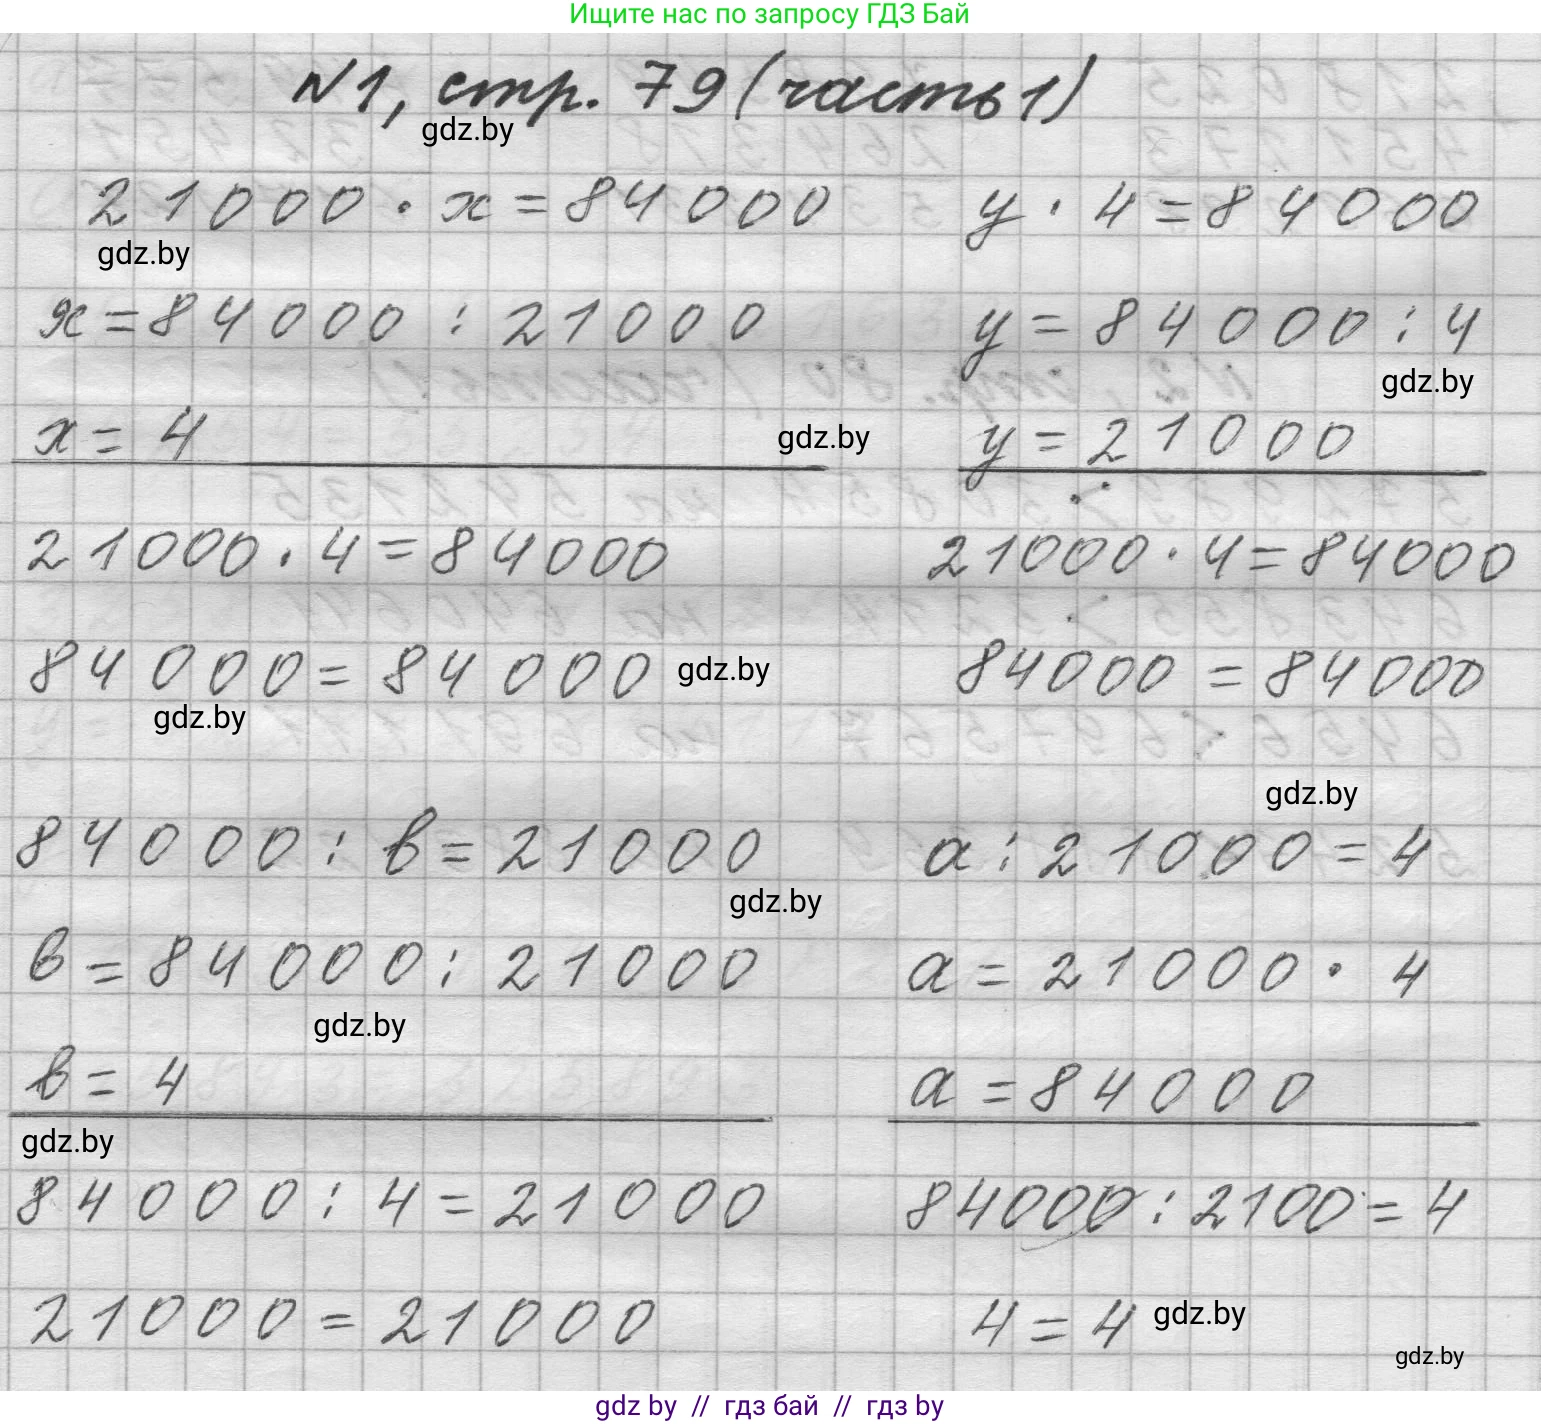 Ищите нас по запросу ГДЗ Бай
№1, стр. 79 (часть 1)
gdz.by
21000 · x = 84000
y · 4 = 84000
gdz.by
x = 84000 : 21000
y = 84000 : 4
gdz.by
x = 4
gdz.by
y = 21000
21000 · 4 = 84000
21000 · 4 = 84000
84000 = 84000
gdz.by
84000 = 84000
gdz.by
gdz.by
84000 : в = 21000
a : 21000 = 4
gdz.by
в = 84000 : 21000
a = 21000 · 4
gdz.by
в = 4
a = 84000
gdz.by
84000 : 4 = 21000
84000 : 2100 = 4
21000 = 21000
4 = 4
gdz.by
gdz.by
gdz by // гдз бай // гдз by